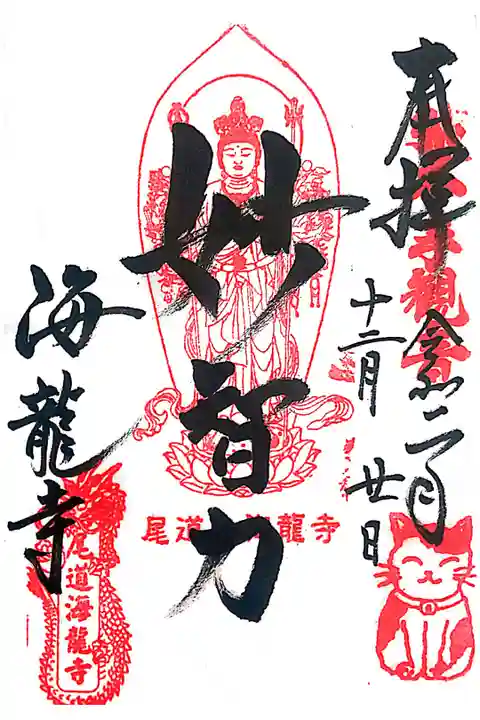 奉拝
令和二年
十二月
廿日
妙智力
海龍寺
尾道 海龍寺
尾道海龍寺